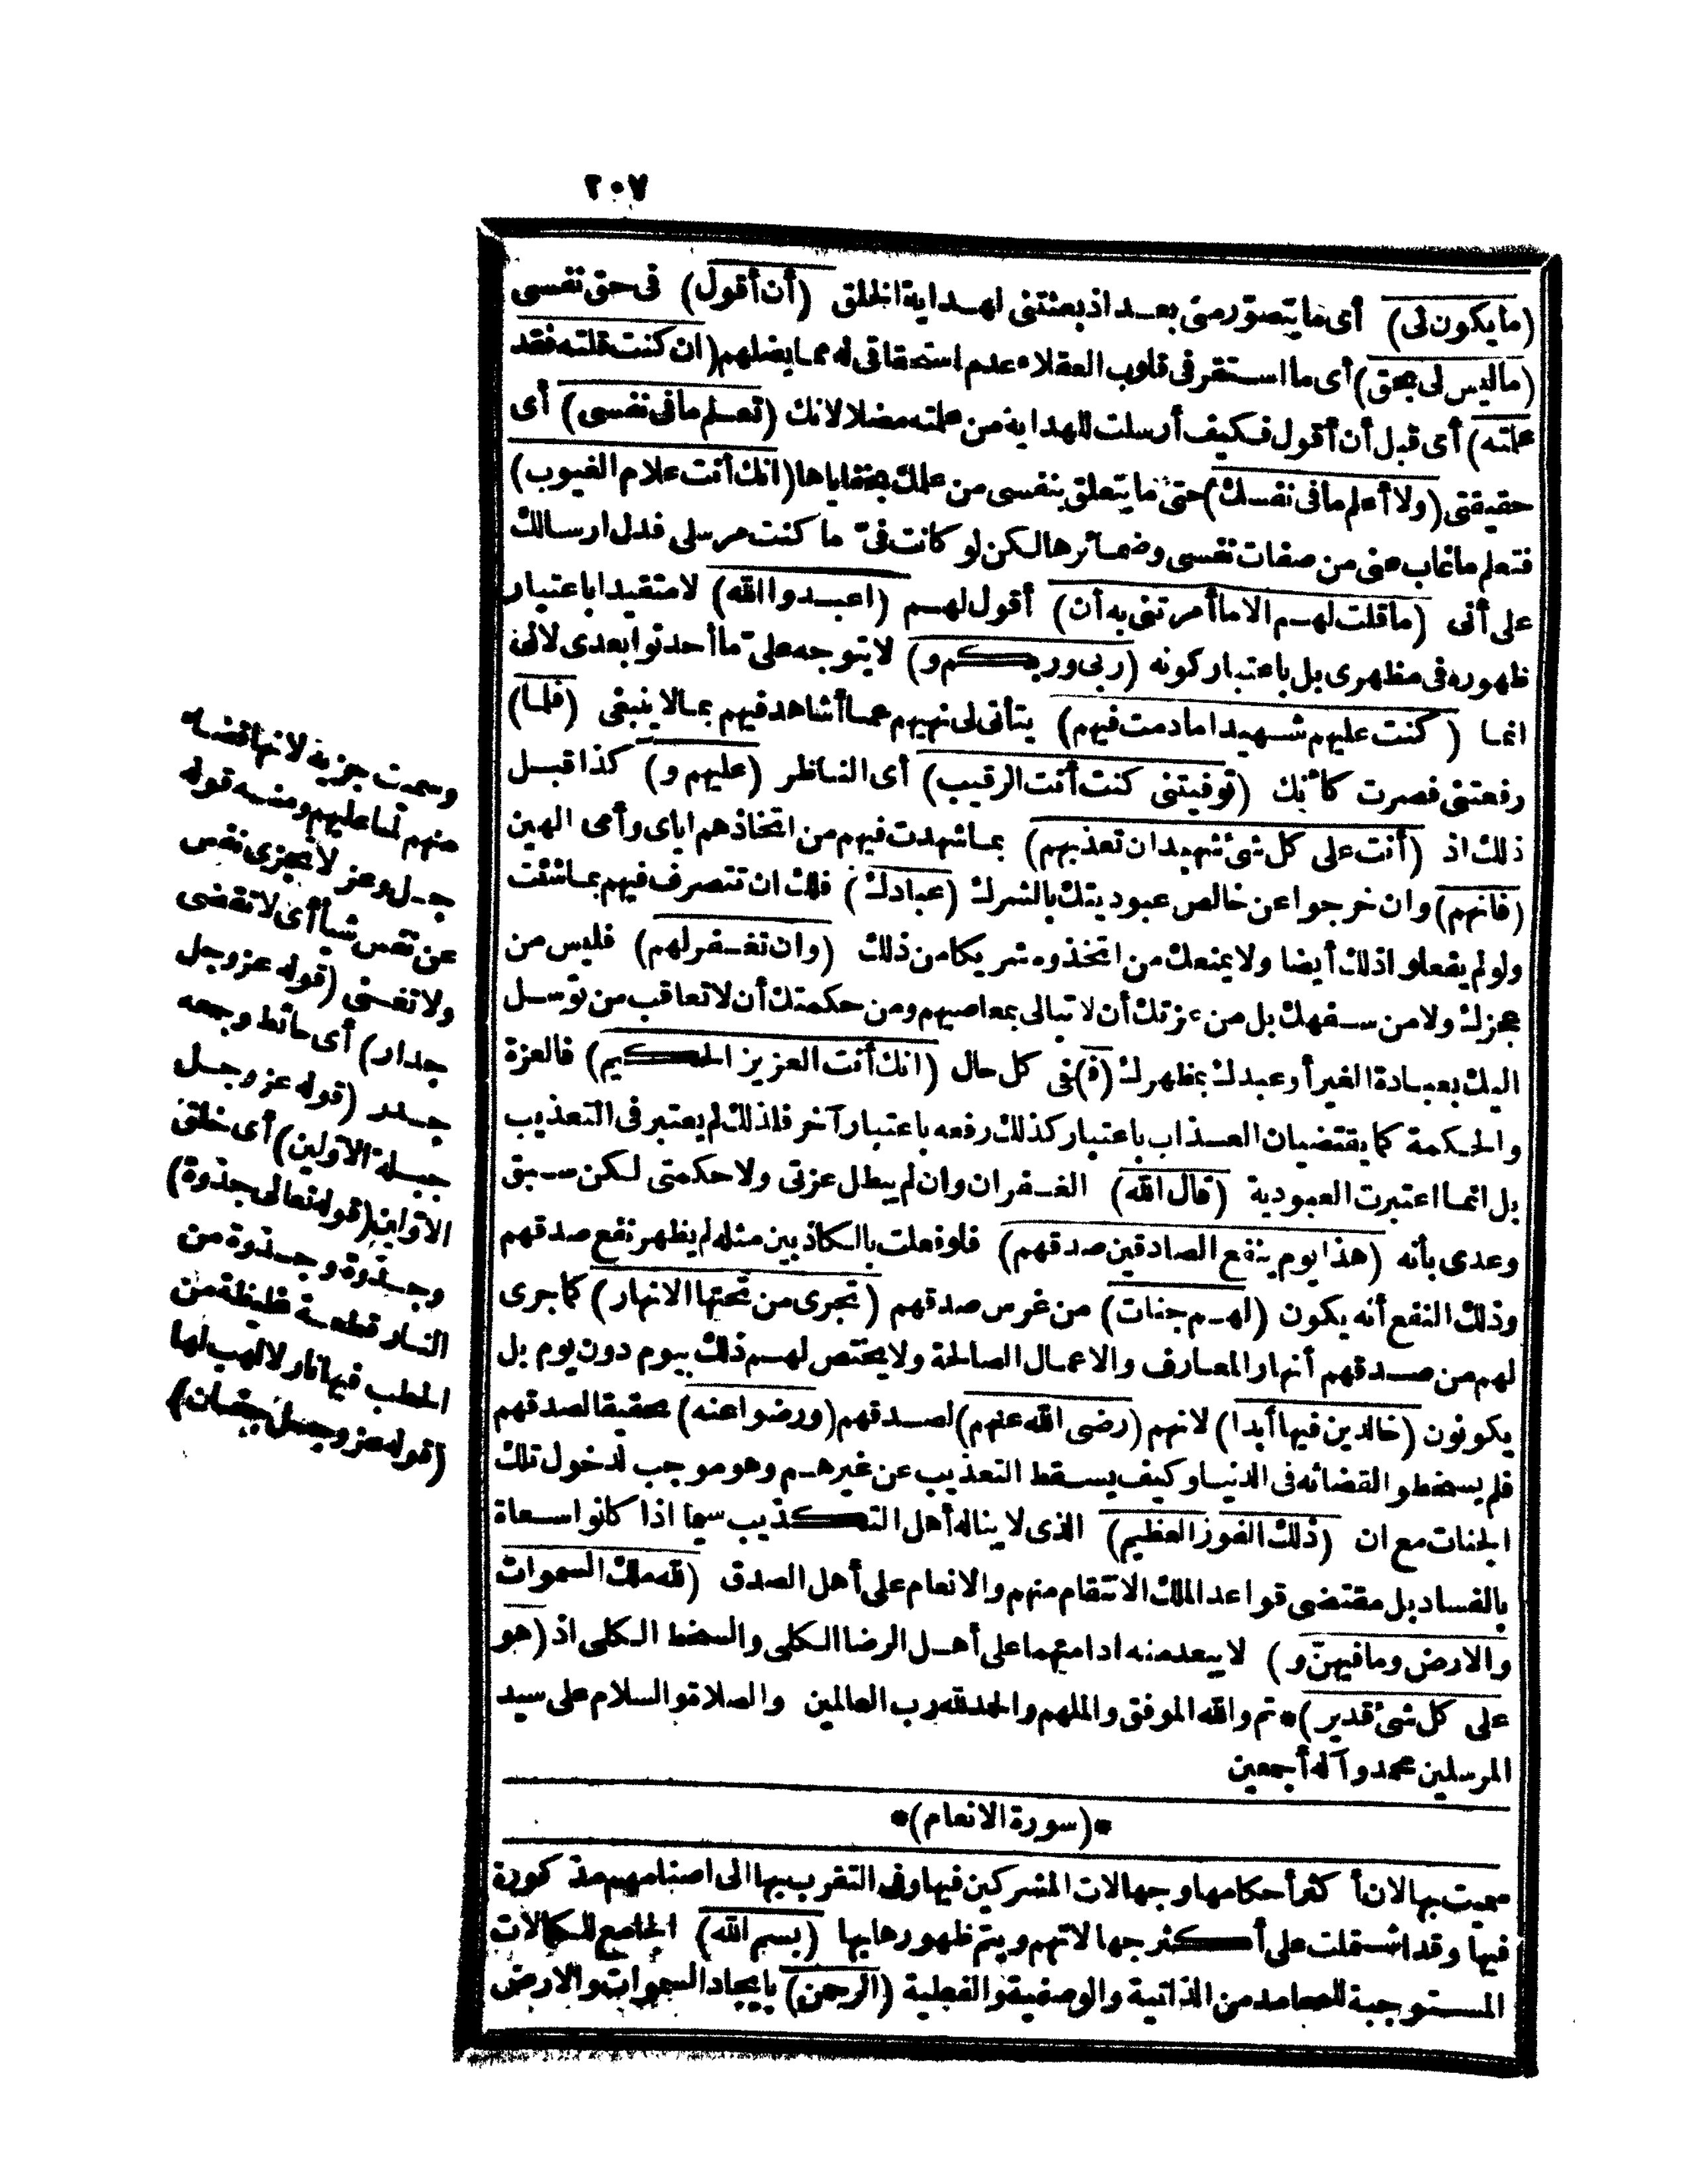 ٢٠٧
(ما يكون لى) أى ما يتصوّر منى بعد اذ بعثتنى لهداية الخلق (أن أقول) فى حق نفسى
(ما ليس لى بحق) أى ما استقر فى قلوب العقلاء عدم استحقاقى له مما يضلهم (ان كنت قلته فقد
علمته) أى قبل أن أقول فكيف أرسلت للهداية من علمته مضلا لانك (تعلم ما فى نفسى) أى
حقيقتى (ولا أعلم ما فى نفسك) حتى ما يتعلق بنفسى من علمك بخفاياها (انك أنت علام الغيوب)
فتعلم ما غاب عنى من صفات نفسى وضمائرها لكن لو كانت فىّ ما كنت مرسلى فدل ارسالك
على أنى (ما قلت لهم الا ما أمرتنى به أن) أقول لهم (اعبدوا الله) لا متقيدا باعتبار
ظهوره فى مظهرى بل باعتبار كونه (ربى وربكم و) لا يتوجه علىّ ما أحدثوا بعدى لانى
انما (كنت عليهم شهيدا ما دمت فيهم) يتأتى لى نهيهم عما أشاهد فيهم بما لا ينبغى (فلما)
رفعتنى فصرت كأنك (توفيتنى كنت أنت الرقيب) أى الناظر (عليهم و) كذا قبل
ذلك اذ (أنت على كل شئ شهيد ان تعذبهم) بما شهدت فيهم من اتخاذهم اياى وأمى الهين
(فانهم) وان خرجوا عن خالص عبوديتك بالشرك (عبادك) فلك ان تتصرف فيهم بما شئت
ولو لم يفعلوا ذلك أيضا ولا يمنعك من اتخذوه شريكا من ذلك (وان تغفر لهم) فليس من
عجزك ولا من سفهك بل من عزتك أن لا تبالى بمعاصيهم ومن حكمتك أن لا تعاقب من توسل
اليك بعبادة الغير أو عبدك بمظهرك (ف) فى كل حال (انك أنت العزيز الحكيم) فالعزة
والحكمة كما يقتضيان العذاب باعتبار كذلك رفعه باعتبار آخر فلذلك لم يعتبر فى التعذيب
بل انما اعتبرت العبودية (قال الله) الغفران وان لم يبطل عزتى ولا حكمتى لكن سبق
وعدى بأنه (هذا يوم ينفع الصادقين صدقهم) فلو فعلت بالكاذبين مثله لم يظهر نفع صدقهم
وذلك النفع أنه يكون (لهم جنات) من غرس صدقهم (تجرى من تحتها الانهار) كما جرى
لهم من صدقهم أنهار المعارف والاعمال الصالحة ولا يختص لهم ذلك بيوم دون يوم بل
يكونون (خالدين فيها أبدا) لانهم (رضى الله عنهم) لصدقهم (ورضوا عنه) تحقيقا لصدقهم
فلم يسخطوا لقضائه فى الدنيا وكيف يسقط التعذيب عن غيرهم وهو موجب لدخول تلك
الجنات مع ان (ذلك الفوز العظيم) الذى لا يناله أهل التكذيب سيما اذا كانوا سعاة
بالفساد بل مقتضى قواعد الملك الانتقام منهم والانعام على أهل الصدق (لله ملك السموات
والارض وما فيهنّ و) لا يبعد منه ادامتهما على أهل الرضا الكلى والسخط الكلى اذ (هو
على كل شئ قدير) * تم والله الموفق والملهم والحمد لله رب العالمين والصلاة والسلام على سيد
المرسلين محمد وآله أجمعين
*(سورة الانعام)*
سميت بها لان أكثر أحكامها وجهالات المشركين فيها وفى التقرب بها الى اصنامهم مذكورة
فيها وقد اشتملت على أكثر جهالاتهم ويتم ظهورها بها (بسم الله) الجامع للكمالات
المستوجبة للمحامد من الذاتية والوصفية والفعلية (الرحمن) بايجاد السموات والارض
وسميت جزية لانها قضاء
منهم لما عليهم ومنه قوله
جل وعز لا تجزى نفس
عن نفس شيأ أى لا تقضى
ولا تغنى (قوله عز وجل
جدار) أى حائط وجمعه
جدر (قوله عز وجل
جبلة الاولين) أى خلق
الاولين (قوله تعالى جذوة)
وجذوة وجذوة من
النار قطعة غليظة من
الحطب فيها نار لا لهب لها
(قوله عز وجل جفان)